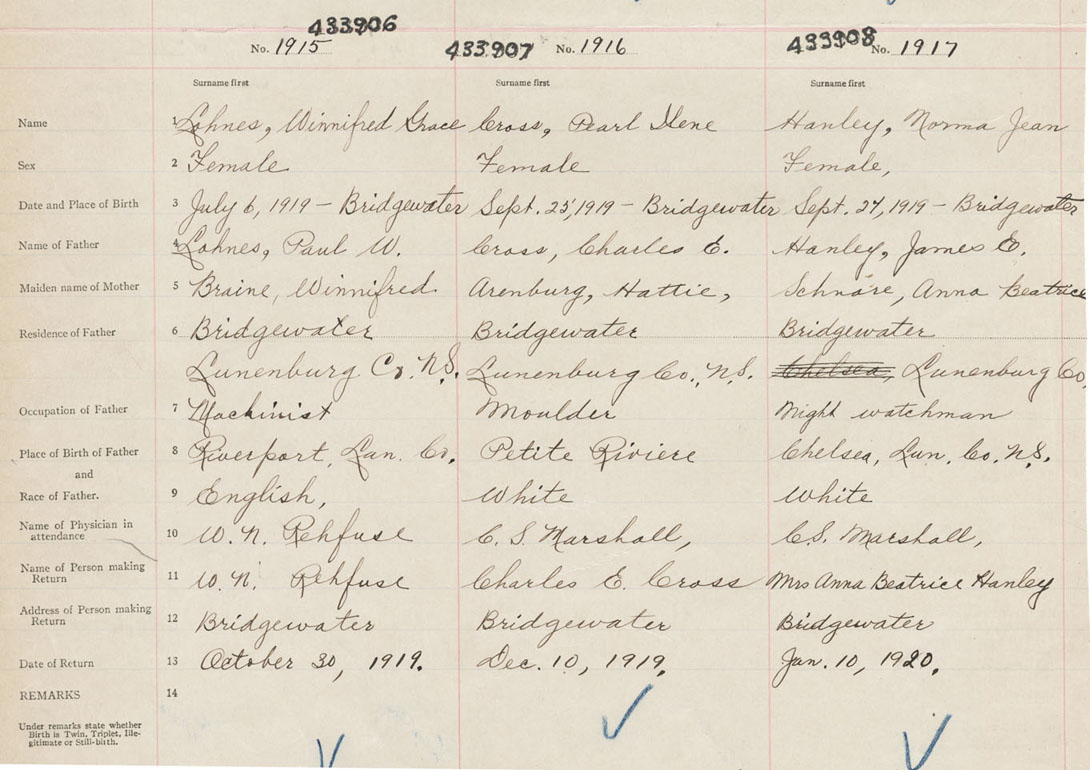 433906 433907 433908
No. 1915 No. 1916 No. 1917
Surname first Surname first Surname first
Name 1 Lohnes, Winnifred Grace Cross, Pearl Ilene Hanley, Norma Jean
Sex 2 Female Female Female,
Date and Place of Birth 3 July 6, 1919 – Bridgewater Sept. 25, 1919 – Bridgewater Sept. 27, 1919 – Bridgewater
Name of Father 4 Lohnes, Paul W. Cross, Charles E. Hanley, James E.
Maiden name of Mother 5 Braine, Winnifred Arenburg, Hattie, Schnare, Anna Beatrice
Residence of Father 6 Bridgewater Bridgewater Bridgewater
Lunenburg Co. N.S. Lunenburg Co., N.S. Chelsea, Lunenburg Co,
Occupation of Father 7 Machinist Moulder Night watchman
Place of Birth of Father 8 Riverport, Lun. Co. Petite Riviere Chelsea, Lun. Co. N.S.
and
Race of Father. 9 English, White White
Name of Physician in attendance 10 W. N. Rehfuse C. S. Marshall, C.S. Marshall,
Name of Person making Return 11 W. N. Rehfuse Charles E. Cross Mrs Anna Beatrice Hanley
Address of Person making Return 12 Bridgewater Bridgewater Bridgewater
Date of Return 13 October 30, 1919. Dec. 10, 1919. Jan. 10, 1920.
REMARKS 14
Under remarks state whether
Birth is Twin, Triplet, Ille-
gitimate or Still-birth.